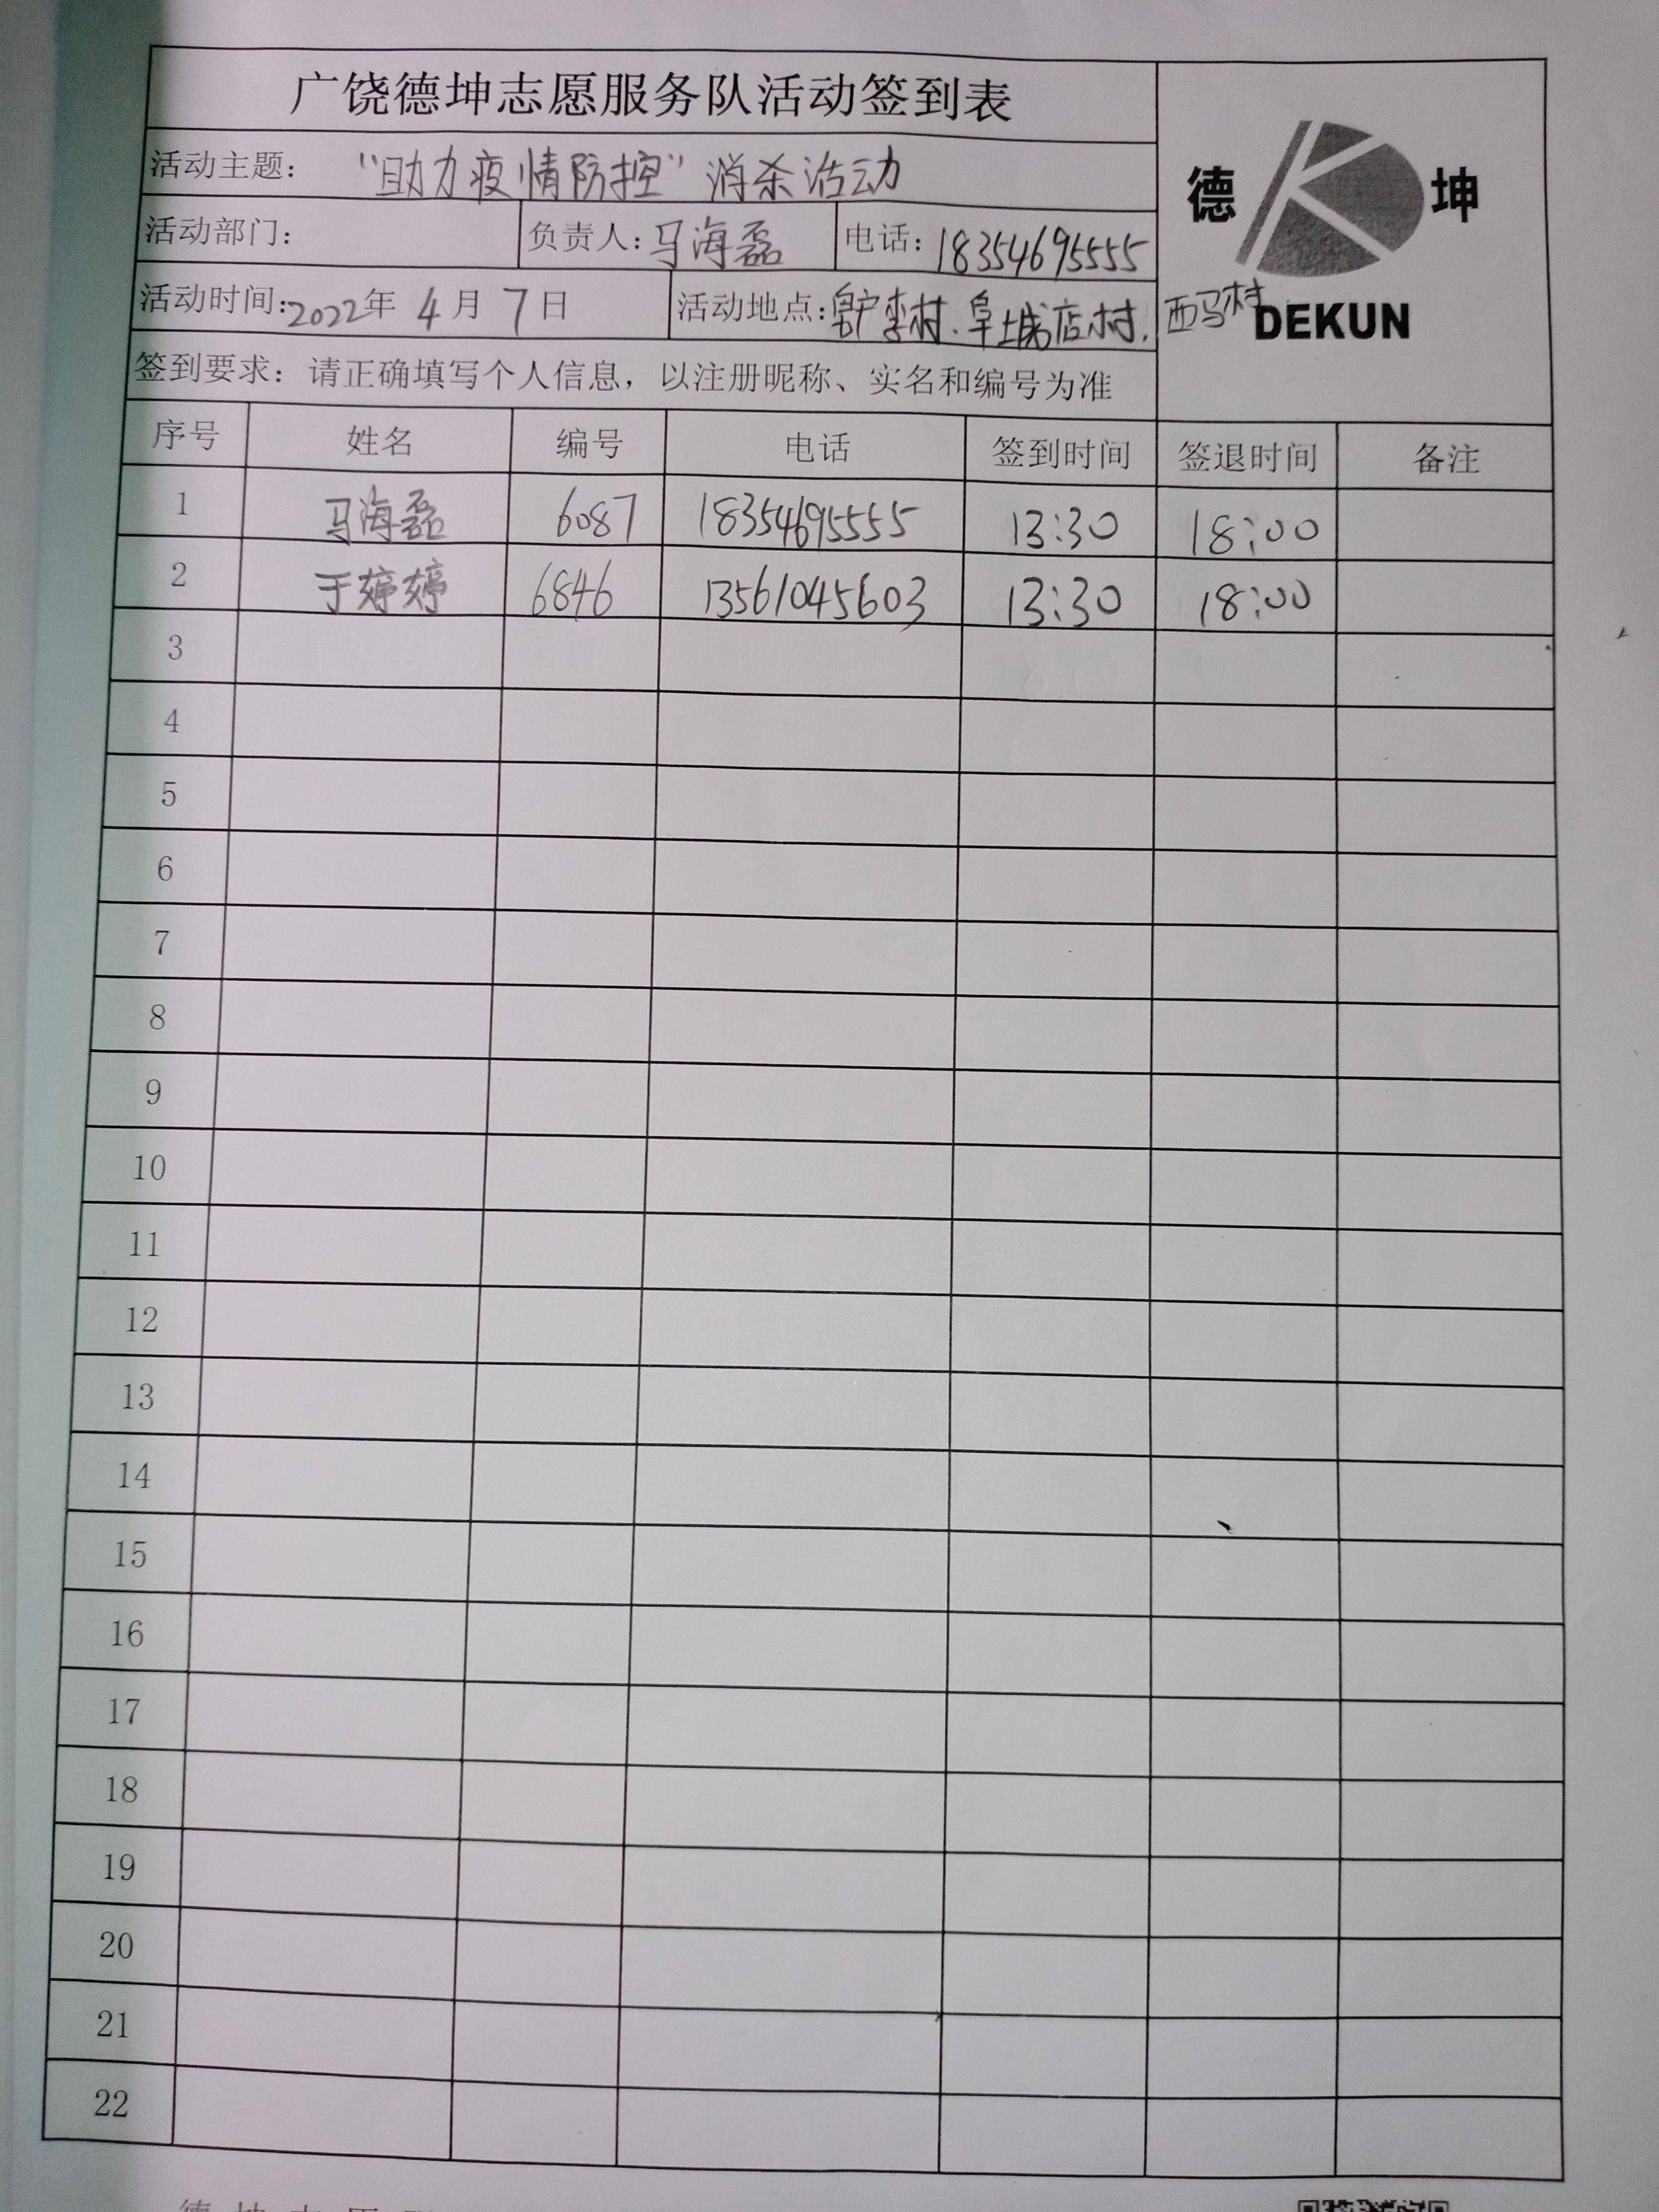 广饶德坤志愿服务队活动签到表
活动主题： “助力疫情防控”消杀活动
德 坤
活动部门： 负责人：马海磊 电话：18354695555
活动时间：2022年 4月 7日 活动地点： 李村、阜城店村、西马村
DEKUN
签到要求：请正确填写个人信息，以注册昵称、实名和编号为准
序号 姓名 编号 电话 签到时间 签退时间 备注
1 马海磊 6087 18354695555 13:30 18:00
2 于婷婷 6846 13561045603 13:30 18:00
3
4
5
6
7
8
9
10
11
12
13
14
15
16
17
18
19
20
21
22